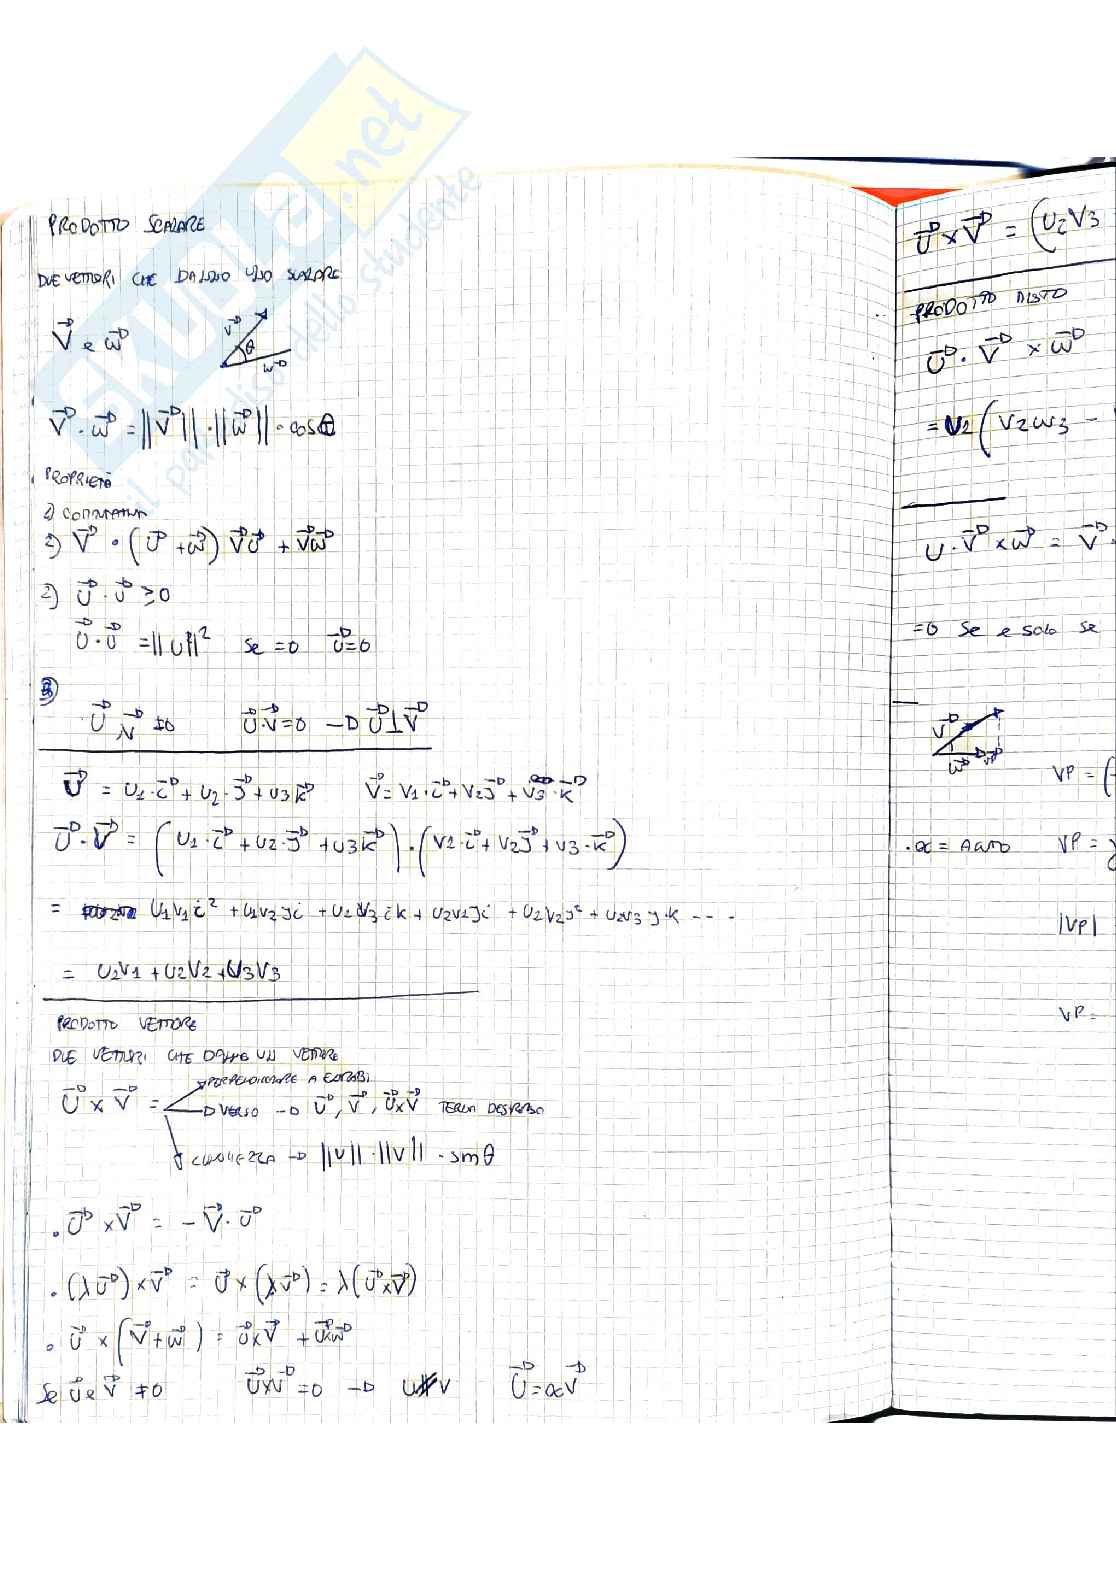 SKUOLA.net
il paradiso dello studente
PRODOTTO SCALARE
DUE VETTORI CHE DANNO UNO SCALARE
V⃗ e w⃗
V⃗ θ w⃗
V⃗ · w⃗ = ||V⃗|| · ||w⃗|| · cosθ
PROPRIETÀ
1) COMMUTATIVA
2) V⃗ · (U⃗ + w⃗) V⃗U⃗ + V⃗w⃗
2) U⃗ · U⃗ ≥ 0
U⃗ · U⃗ = ||U||² se = 0 U⃗ = 0
3)
U⃗ V⃗ ≠ 0 U⃗·V⃗ = 0 → U⃗ ⊥ V⃗
U⃗ = U1·i⃗ + U2·J⃗ + U3k⃗ V⃗ = V1·i⃗ + V2J⃗ + V3·k⃗
U⃗·V⃗ = (U1·i⃗ + U2·J⃗ + U3k⃗)·(V1·i⃗ + V2J⃗ + V3·k⃗)
= U1V1i² + U1V2Ji + U1V3ik + U2V1Ji + U2V2J² + U2V3J·k - - -
= U1V1 + U2V2 + U3V3
PRODOTTO VETTORE
DUE VETTORI CHE DANNO UN VETTORE
PERPENDICOLARE A ENTRAMBI
U⃗ × V⃗ = VERSO → U⃗, V⃗, U⃗×V⃗ TERNA DESTRORSA
LUNGHEZZA → ||V|| · ||V|| · sinθ
. U⃗ × V⃗ = - V⃗ · U⃗
. (λU⃗) × V⃗ = U⃗ × (λV⃗) = λ(U⃗×V⃗)
. U⃗ × (V⃗ + w⃗) = U⃗×V⃗ + U⃗×w⃗
Se U⃗ e V⃗ ≠ 0 U⃗×V⃗ = 0 → U // V U⃗ = αV⃗
U⃗ × V⃗ = (U2V3
PRODOTTO MISTO
U⃗ · V⃗ × w⃗
= U1(V2w3 -
U · V⃗ × w⃗ = V⃗ ·
= 0 Se e solo se
V⃗ w⃗ VP
VP = (
. α = Acuto VP =
|VP|
VP =